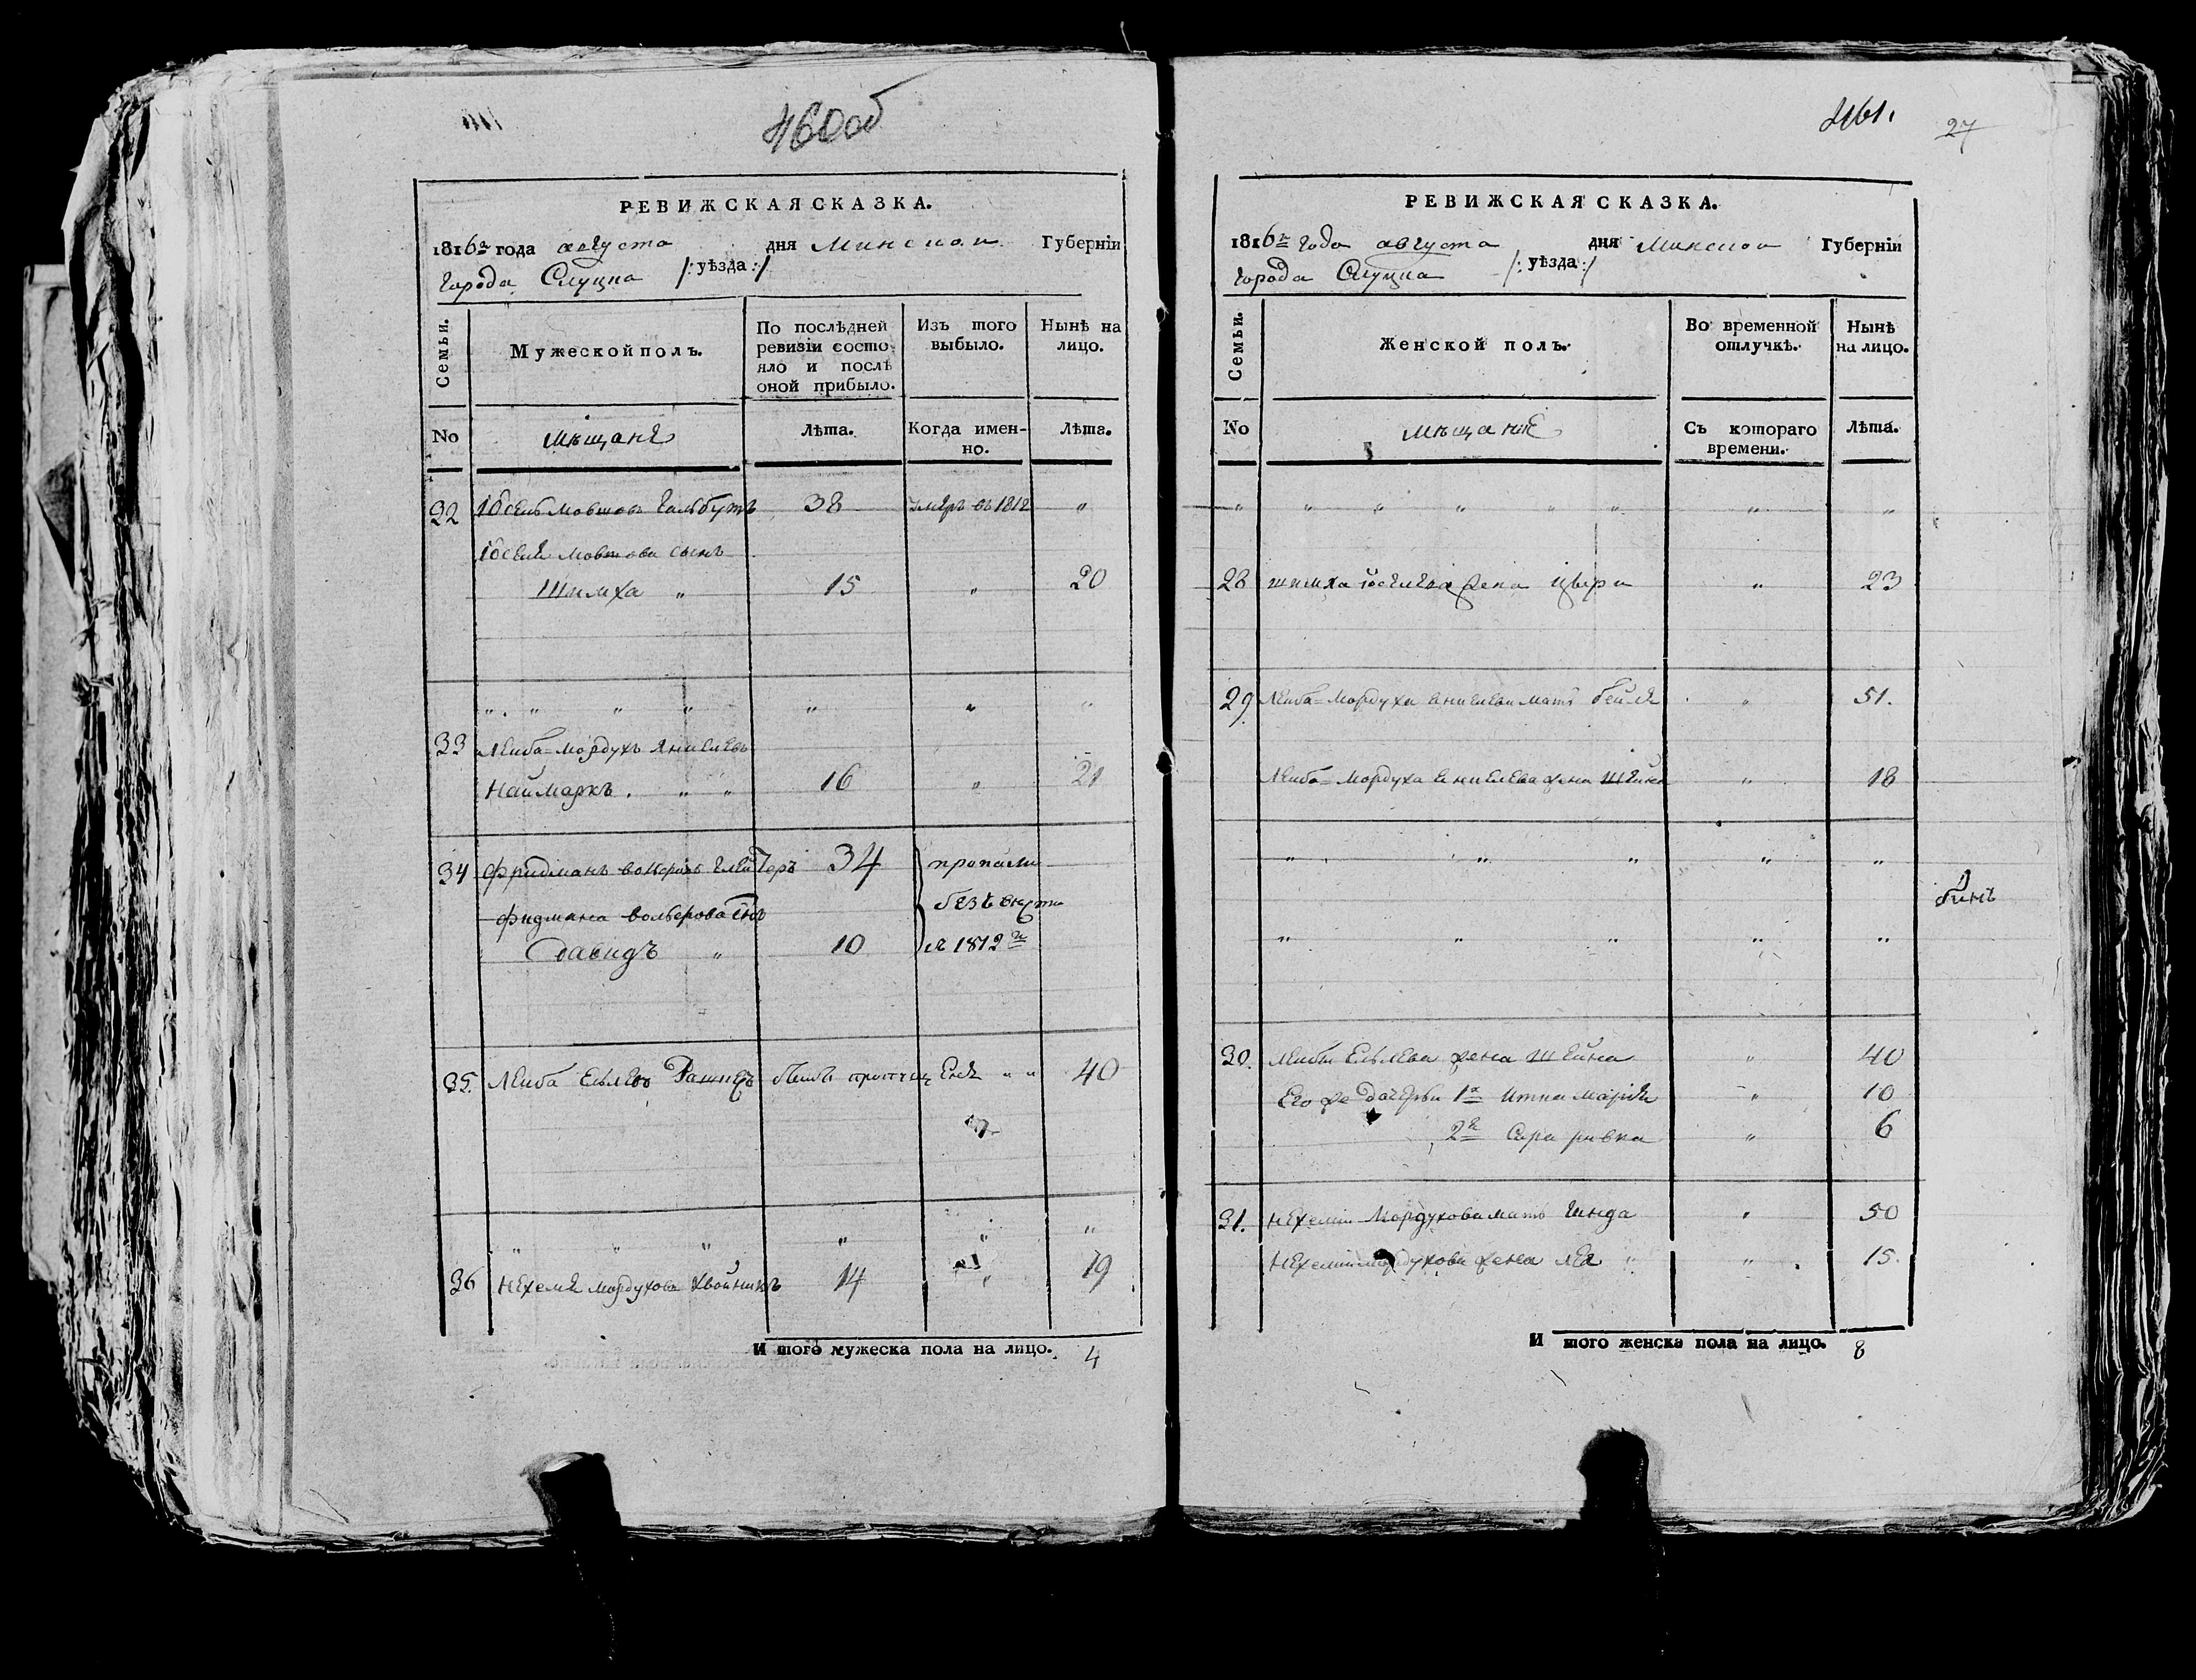 460об
РЕВИЖСКАЯ СКАЗКА.
1816го года августа дня Минской Губернїи
города Слуцка /: уѣзда :/
Семьи.
Мужеской полъ.
По послѣдней ревизїи состояло и послѣ оной прибыло.
Изъ того выбыло.
Нынѣ на лицо.
No
Мѣщанѣ
Лѣта.
Когда именно.
Лѣта.
32 Іосель Мовшовъ Гальбутъ 38 умеръ въ 1812 "
Іоселя Мовшова сынъ
Шимха " 15 " 20
" " " " " " "
33 Лейба-Мордухъ
Наймаркъ. " " 16 " 21
34 Фридманъ 34 пропали
Фидмана Вольфова сынъ безъ вѣсти
Давидъ " 10 въ 1812м
35. Лейба Ельевъ былъ " " 40
" " " " " "
36 Нехемя Мордуховъ Хвойникъ 14 " 19
И того мужеска пола на лицо. 4
461.
27
РЕВИЖСКАЯ СКАЗКА.
1816го года августа дня Минской Губернїи
города Слуцка /: уѣзда :/
Семьи.
Женской полъ.
Во временной отлучкѣ.
Нынѣ на лицо.
No
Мѣщанкѣ
Съ котораго времени.
Лѣта.
" " " " " " " "
28 Шимха Іоселева жена Цвера " 23
29 Лейба-Мордуха мать Бейля " 51.
Лейба-Мордуха жена Шейна " 18
" " " " "
" " " " "
30. Лейбы Ельева жена Шейна " 40
Его же дочерьи 1я Итка Марія " 10
2я Сара Ривка " 6
31. Нехеміи Мордухова мать Гинда " 50
Нехеміи Мордухова жена Лея " " 15.
И того женска пола на лицо. 8